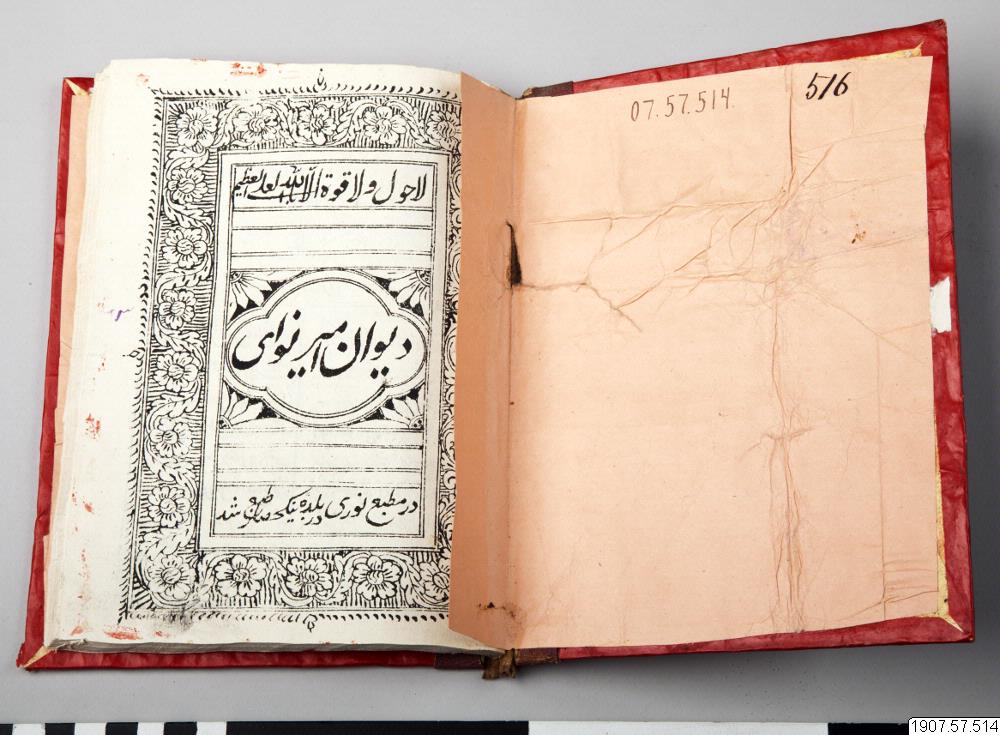 لا حول ولا قوة الا بالله العلى العظيم
ديوان امير نواى
در مطبع نورى در بلده ينكى حصار طبع شد
07.57.514.
516
1907.57.514